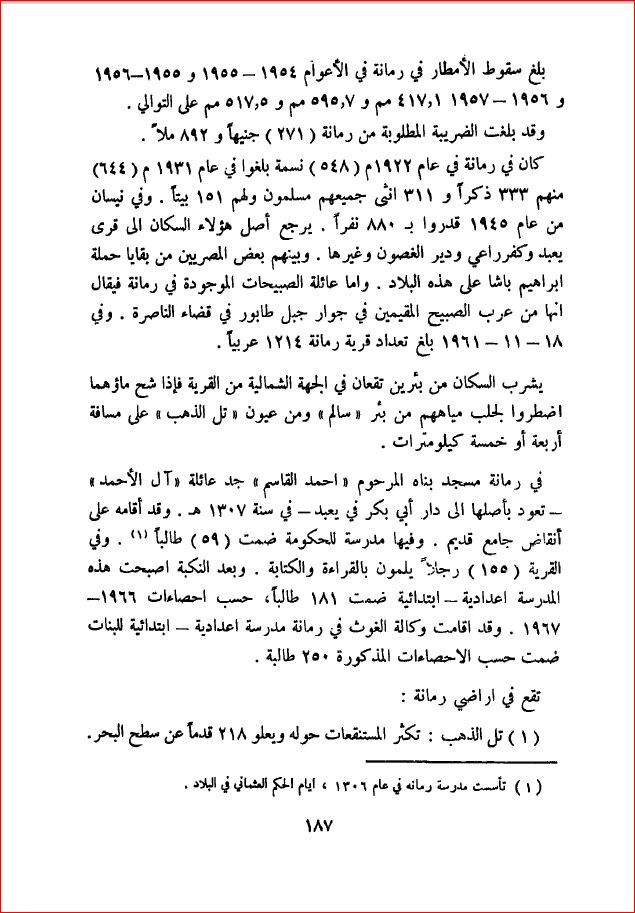 بلغ سقوط الأمطار في رمانة في الأعوام ١٩٥٤ – ١٩٥٥ و ١٩٥٥–١٩٥٦
و ١٩٥٦ – ١٩٥٧ ٤١٧,١ مم و ٥٩٥,٧ مم و ٥١٧,٥ مم على التوالي .
وقد بلغت الضريبة المطلوبة من رمانة ( ٢٧١ ) جنيهاً و ٨٩٢ ملاً .
كان في رمانة في عام ١٩٢٢م ( ٥٤٨ ) نسمة بلغوا في عام ١٩٣١ م ( ٦٤٤ )
منهم ٣٣٣ ذكراً و ٣١١ انثى جميعهم مسلمون ولهم ١٥١ بيتاً . وفي نيسان
من عام ١٩٤٥ قدروا بـ ٨٨٠ نفراً . يرجع أصل هؤلاء السكان الى قرى
يعبد وكفرراعي ودير الغصون وغيرها . وبينهم بعض المصريين من بقايا حملة
ابراهيم باشا على هذه البلاد . واما عائلة الصبيحات الموجودة في رمانة فيقال
انها من عرب الصبيح المقيمين في جوار جبل طابور في قضاء الناصرة . وفي
١٨ – ١١ – ١٩٦١ بلغ تعداد قرية رمانة ١٢١٤ عربياً .
يشرب السكان من بئرين تقعان في الجهة الشمالية من القرية فإذا شح ماؤهما
اضطروا لجلب مياههم من بئر « سالم » ومن عيون « تل الذهب » على مسافة
أربعة أو خمسة كيلومترات .
في رمانة مسجد بناه المرحوم « احمد القاسم » جد عائلة « آل الأحمد »
– تعود بأصلها الى دار أبي بكر في يعبد – في سنة ١٣٠٧ هـ . وقد أقامه على
أنقاض جامع قديم . وفيها مدرسة للحكومة ضمت ( ٥٩ ) طالباً (١) . وفي
القرية ( ١٥٥ ) رجلاً يلمون بالقراءة والكتابة . وبعد النكبة اصبحت هذه
المدرسة اعدادية – ابتدائية ضمت ١٨١ طالباً، حسب احصاءات ١٩٦٦–
١٩٦٧ . وقد اقامت وكالة الغوث في رمانة مدرسة اعدادية – ابتدائية للبنات
ضمت حسب الاحصاءات المذكورة ٢٥٠ طالبة .
تقع في اراضي رمانة :
( ١ ) تل الذهب : تكثر المستنقعات حوله ويعلو ٢١٨ قدماً عن سطح البحر.
( ١ ) تأسست مدرسة رمانه في عام ١٣٠٦ ، ايام الحكم العثماني في البلاد .
١٨٧